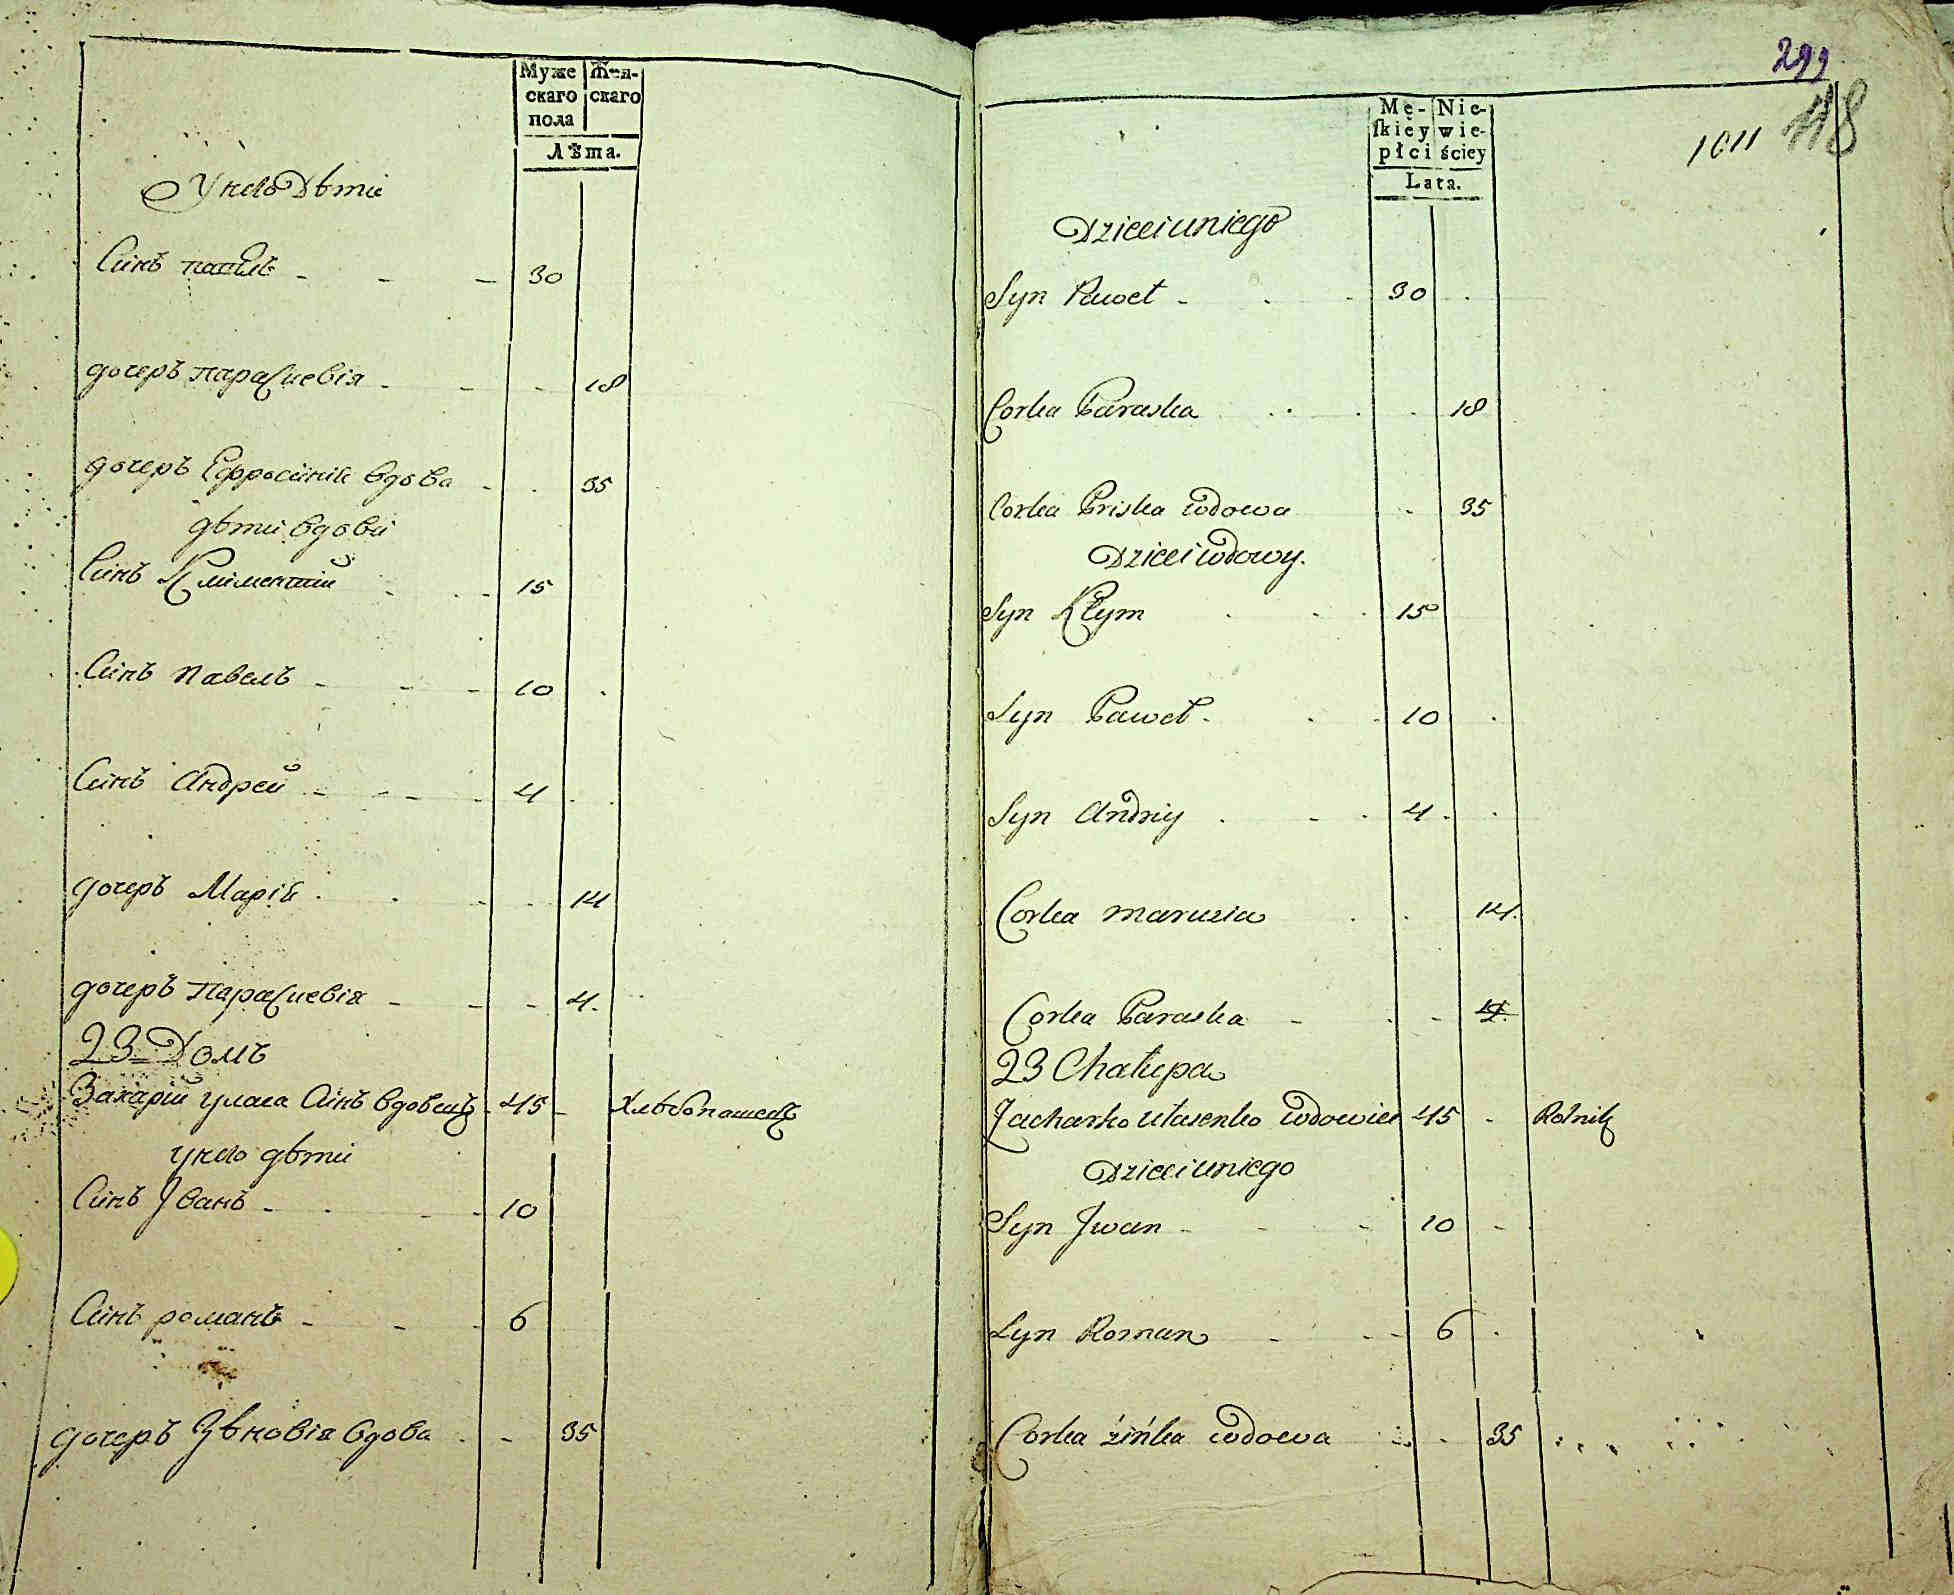 Муже Жен-
скаго скаго
пола
Лѣта.
У него Дѣти
Синъ павелъ - - - 30
дочеръ параскевія - - - 18
дочеръ Ефросинія вдова - - 35
дѣти вдови
Синъ Климентій - - 15
Синъ Павелъ - - - 10
Синъ Андрей - - - 4
дочеръ Марія - - - 14
дочеръ параскевія - - - 4
23 Домъ
Захарій Уласа Синъ вдовецъ - 45 - Хлѣбопашецъ
у него дѣти
Синъ Іванъ - - - 10
Синъ романъ - - - 6
дочеръ Зѣновія вдова - - 35
299
118
1011
Mę- Nie-
skiey wie-
płci ściey
Lata.
Dzieci u niego
Syn Paweł - - - 30
Corka Paraska - - - 18
Corka Priska wdowa - 35
Dzieci wdowy.
Syn Kłym - - - 15
Syn Paweł - - - 10
Syn Andriy - - - 4
Corka maruzia - - 14
Corka Paraska - - - 4
23 Chałupa
Zacharko Ułasenko wdowiec 45 - Rolnik
Dzieci u niego
Syn Jwan - - - 10
Syn Roman - - - 6
Corka źińka wdowa - - 35